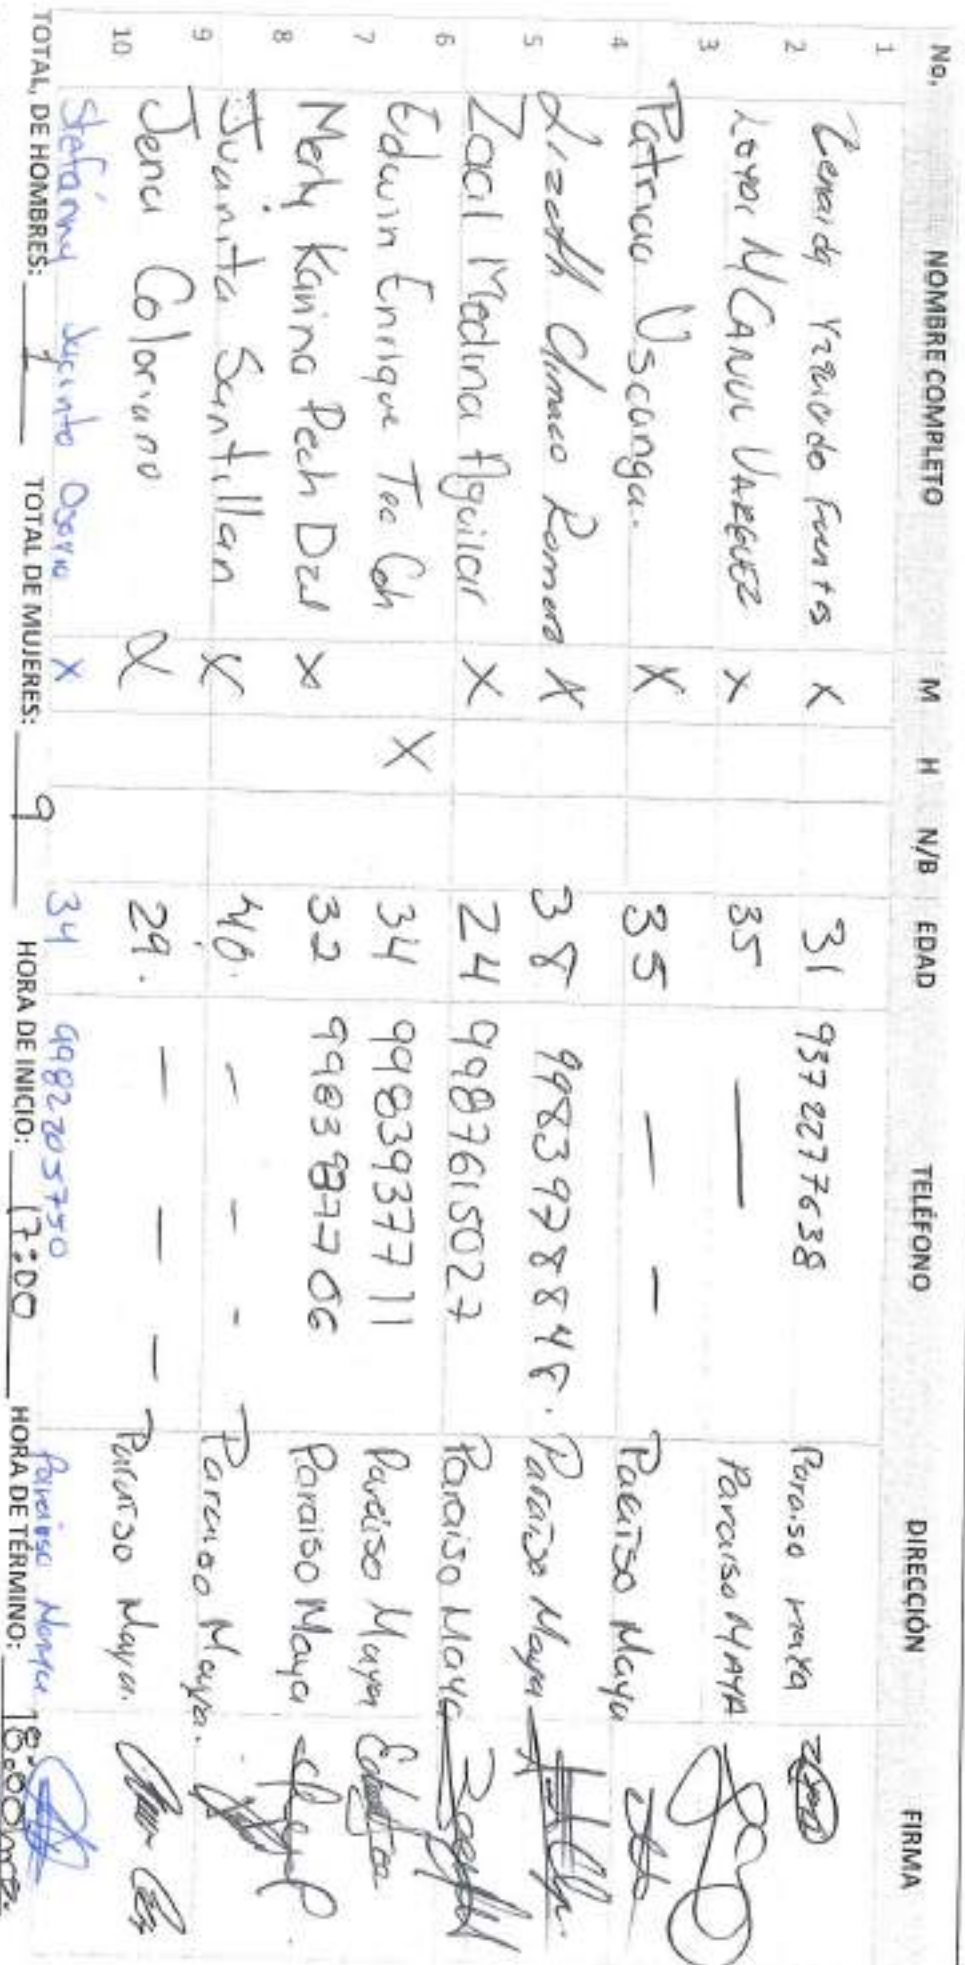 No. NOMBRE COMPLETO M H N/B EDAD TELÉFONO DIRECCIÓN FIRMA
1 Zenaida Yzquierdo Fuentes X 31 9372277638 Paraiso maya
2 Loyda N CANUL VARGUEZ X 35 — Paraiso MAYA
3 Patricia Uscanga. X 35 — — Paraiso Maya
4 Lizeth Climaco Romero X 38 9983978848. Paraiso Maya
5 Zacil Medina Aguilar X 24 9987615027 Paraiso Maya
6 Edwin Enrique Tec Coh X 34 9983937711 Paraiso Maya
7 Merly Karina Pech Dzul X 32 9983987706 Paraiso Maya
8 Juanita Santillan X 40. - - - Paraiso Maya.
9 Jena Coloriano X 29. — — — Paraiso Maya.
10 Stefanny Jacinto Osorio X 34 9982705750 Paraiso Maya
TOTAL, DE HOMBRES: 1 TOTAL DE MUJERES: 9 HORA DE INICIO: 17:00 HORA DE TÉRMINO: 18:00